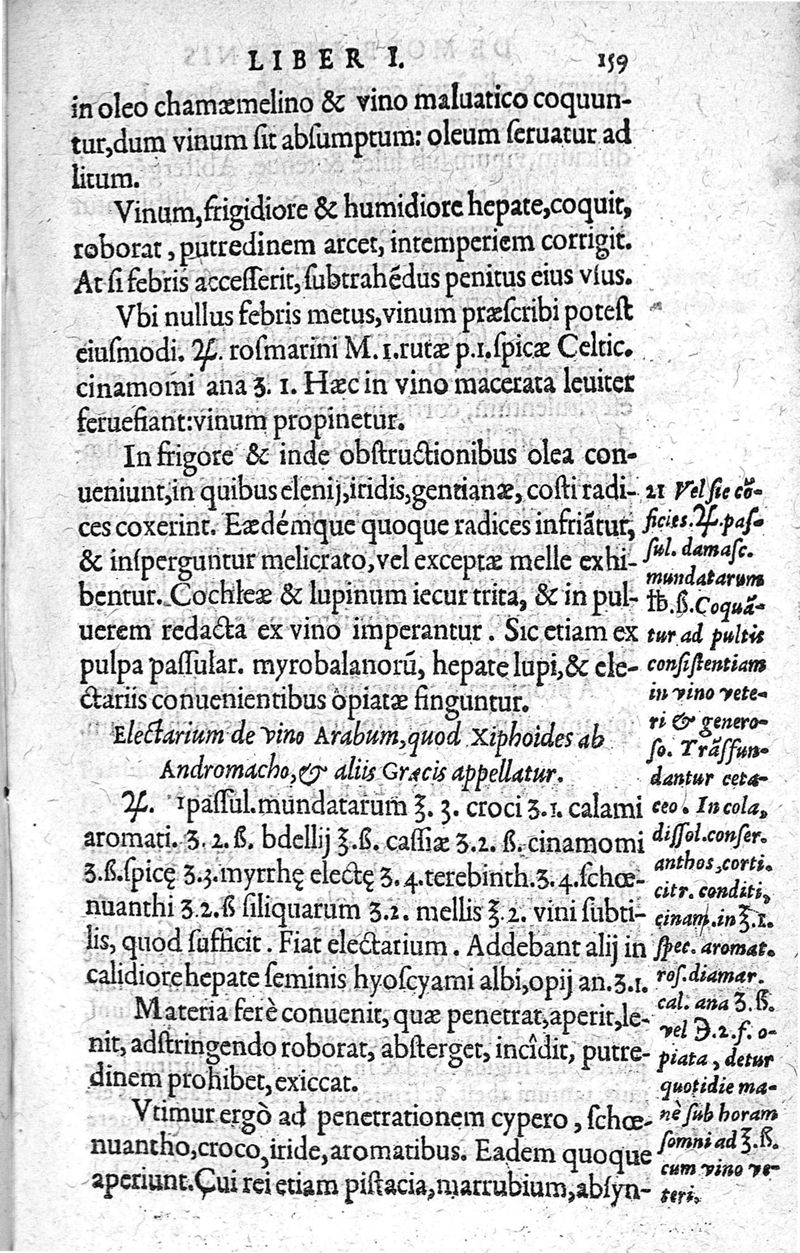 LIBER I. 159
in oleo chamæmelino & vino maluatico coquun-
tur, dum vinum ſit abſumptum: oleum ſeruatur ad
litum.
Vinum, frigidiore & humidiore hepate, coquit,
roborat, putredinem arcet, intemperiem corrigit.
At ſi febris acceſſerit, ſubtrahẽdus penitus eius vſus.
Vbi nullus febris metus, vinum præſcribi poteſt
eiuſmodi. ♃. roſmarini M. 1. rutæ p. 1. ſpicæ Celtic.
cinamomi ana ʒ. 1. Hæc in vino macerata leuiter
feruefiant: vinum propinetur.
In frigore & inde obſtructionibus olea con-
ueniunt, in quibus elenij, iridis, gentianæ, coſti radi-
ces coxerint. Eædémque quoque radices infriãtur,
& inſperguntur melicrato, vel exceptæ melle exhi-
bentur. Cochleæ & lupinum iecur trita, & in pul-
uerem redacta ex vino imperantur. Sic etiam ex
pulpa paſſular. myrobalanorũ, hepate lupi, & ele-
ctariis conuenientibus opiatæ finguntur.
Electarium de vino Arabum, quod Xiphoides ab
Andromacho, & aliis Græcis appellatur.
♃. ¹paſſul. mundatarum ℥. 3. croci ʒ. 1. calami
aromati. ʒ. 2. ß. bdellij ℥. ß. caſſiæ ʒ. 2. ß. cinamomi
ʒ. ß. ſpicę ʒ. 3. myrrhę electę ʒ. 4. terebinth. ʒ. 4. ſchœ-
nuanthi ʒ. 2. ß ſiliquarum ʒ. 2. mellis ℥. 2. vini ſubti-
lis, quod ſufficit. Fiat electarium. Addebant alij in
calidiore hepate ſeminis hyoſcyami albi, opij an. ʒ. 1.
Materia ferè conuenit, quæ penetrat, aperit, le-
nit, adſtringendo roborat, abſterget, incîdit, putre-
dinem prohibet, exiccat.
Vtimur ergò ad penetrationem cypero, ſchœ-
nuantho, croco, iride, aromatibus. Eadem quoque
aperiunt. Cui rei etiam piſtacia, marrubium, abſyn-
21 Vel ſic cõ-
ficies. ♃. paſ-
ſul. damaſc.
mundatarum
℔. ß. Coquã-
tur ad pultis
conſiſtentiam
in vino vete-
ri & genero-
ſo. Trãſfun-
dantur ceta-
ceo. In cola,
diſſol. conſer.
anthos, corti.
citr. conditi,
cinam. in ℥. 1.
ſpec. aromat.
roſ. diamar.
cal. ana ʒ. ß.
vel ℈. 2. f. o-
piata, detur
quotidie ma-
nè ſub horam
ſomni ad ℥. ß.
cum vino ve-
teri.